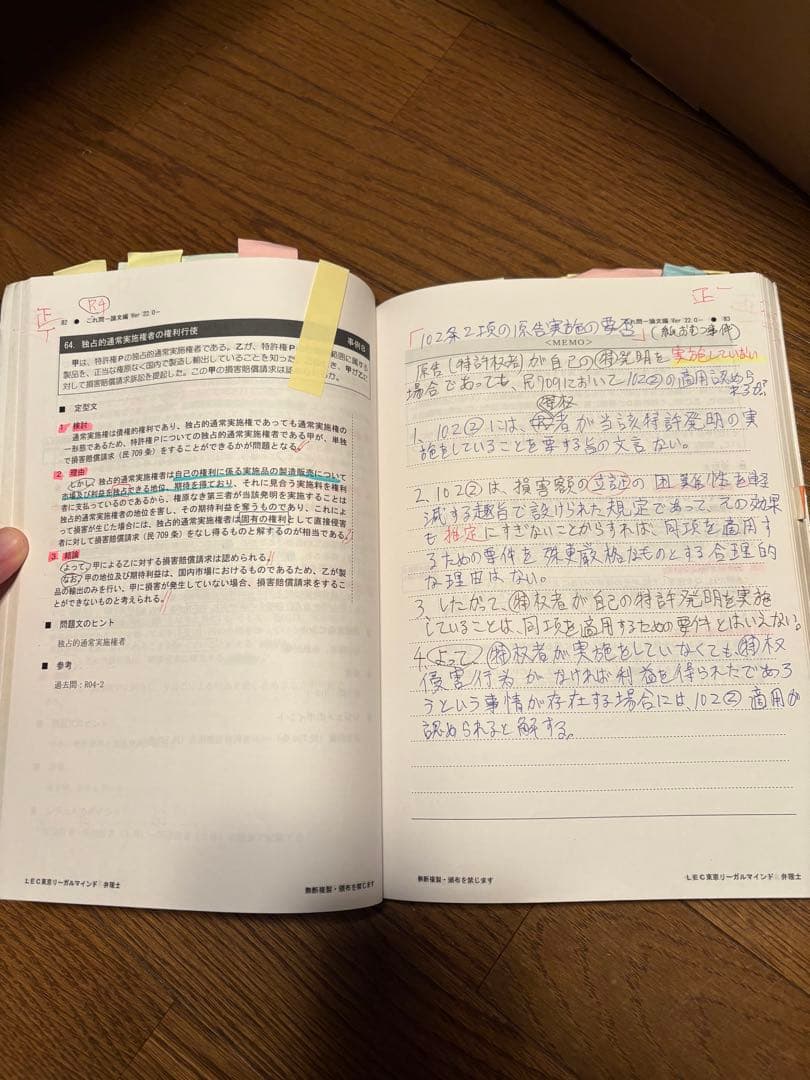 正
R4
82 ● これ問－論文編 Ver '22.0－
64. 独占的通常実施権者の権利行使
事例B
甲は、特許権Pの独占的通常実施権者である。乙が、特許権P
範囲に属する
製品を、正当な権原なく国内で製造し輸出していることを知った
き、甲が乙に
対して損害賠償請求訴訟を提起した。この甲の損害賠償請求は
■ 定型文
1 検討
通常実施権は債権的権利であり、独占的通常実施権であっても通常実施権の
一形態であるため、特許権Pについての独占的通常実施権者である甲が、単独
で損害賠償請求（民709条）をすることができるかが問題となる。
2 理由
しかし、独占的通常実施権者は自己の権利に係る実施品の製造販売について
市場及び利益を独占できる地位、期待を得ており、それに見合う実施料を権利
者に支払っているのであるから、権原なき第三者が当該発明を実施することは
独占的通常実施権者の地位を害し、その期待利益を奪うものであり、これによ
って損害が生じた場合には、独占的通常実施権者は固有の権利として直接侵害
者に対して損害賠償請求（民709条）をなし得るものと解するのが相当である。
3 結論
よって、甲による乙に対する損害賠償請求は認められる。
なお、甲の地位及び期待利益は、国内市場におけるものであるため、乙が製
品の輸出のみを行い、甲に損害が発生していない場合、損害賠償請求をするこ
とができないものと考えられる。
■ 問題文のヒント
独占的通常実施権者
■ 参考
過去問：R04-2
LEC東京リーガルマインド 弁理士
無断複製・頒布を禁じます
正
れ問－論文編 Ver '22.0－ ● 83
「102条2項の原告実施の要否」(紙おむつ事件)
＜MEMO＞
原告(特許権者)が自己の㊕発明を実施していない
場合であっても、民709において102②の適用認めら
れるか?
㊕権
1. 102②には、者が当該特許発明の実
施をしていることを要する旨の文言ない。
2. 102②は、損害額の立証の困難性を軽
減する趣旨で設けられた規定であって、その効果
も推定にすぎないことからすれば、同項を適用す
るための要件を殊更厳格なものとする合理的
な理由はない。
3. したがって、㊕権者が自己の特許発明を実施
していることは、同項を適用するための要件とはいえない。
4. よって、㊕権者が実施をしていなくても、㊕権
侵害行為がなければ利益を得られたであろ
うという事情が存在する場合には、102②適用が
認められると解する。
無断複製・頒布を禁じます
LEC東京リーガルマインド 弁理士